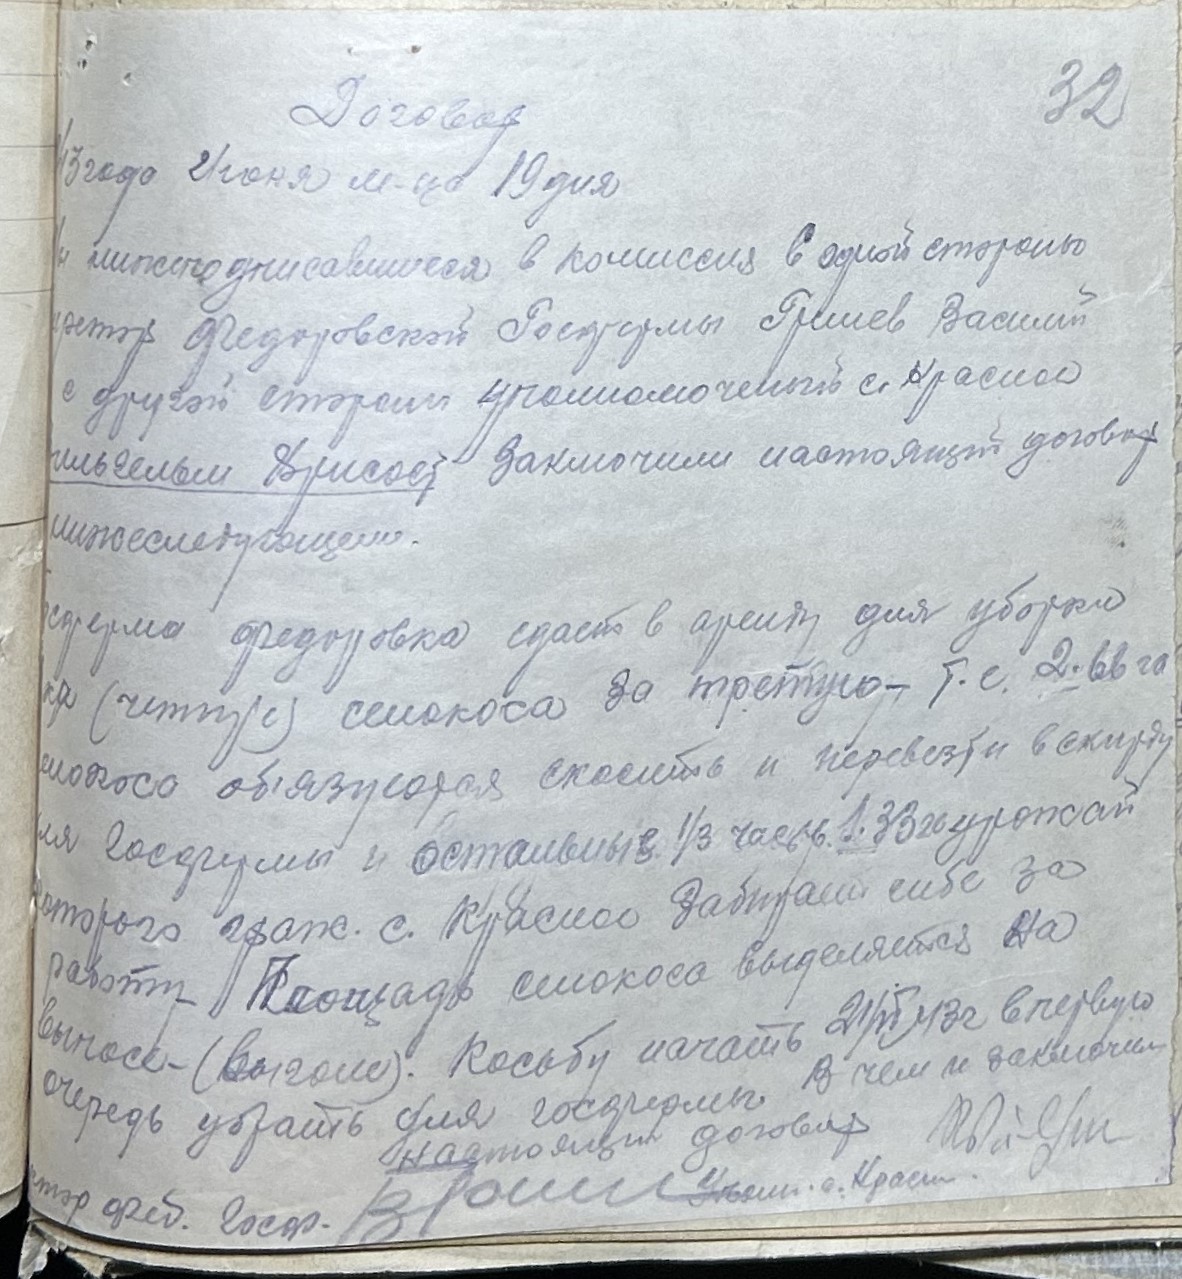 32
Договор
43 года Июня м-ца 19 дня
нижеподписавшиеся в комиссия с одной стороны
ректор Федоровской Госфермы Гришев Василий
с другой стороны уполномоченый с. Красное
заключили настоящий договор
нижеследующем.
осферма Федоровка сдает в аренду для уборки
(четыре) сенокоса за третую- т.е. 2.66 га
енокоса обязуются скосить и перевезти в скирду
ля Госфермы и остальные 1/3 часть. 1.33 га урожай
оторого граж. с. Красное забирает себе за
работу Площадь сенокоса выделяется на
выносе- (выгоне). Косьбу начать 21/VI 43г в первую
очередь убрать для госфермы. В чем и заключили
настоящий договор
ктор Фед. Госф. Упол. с. Красн.